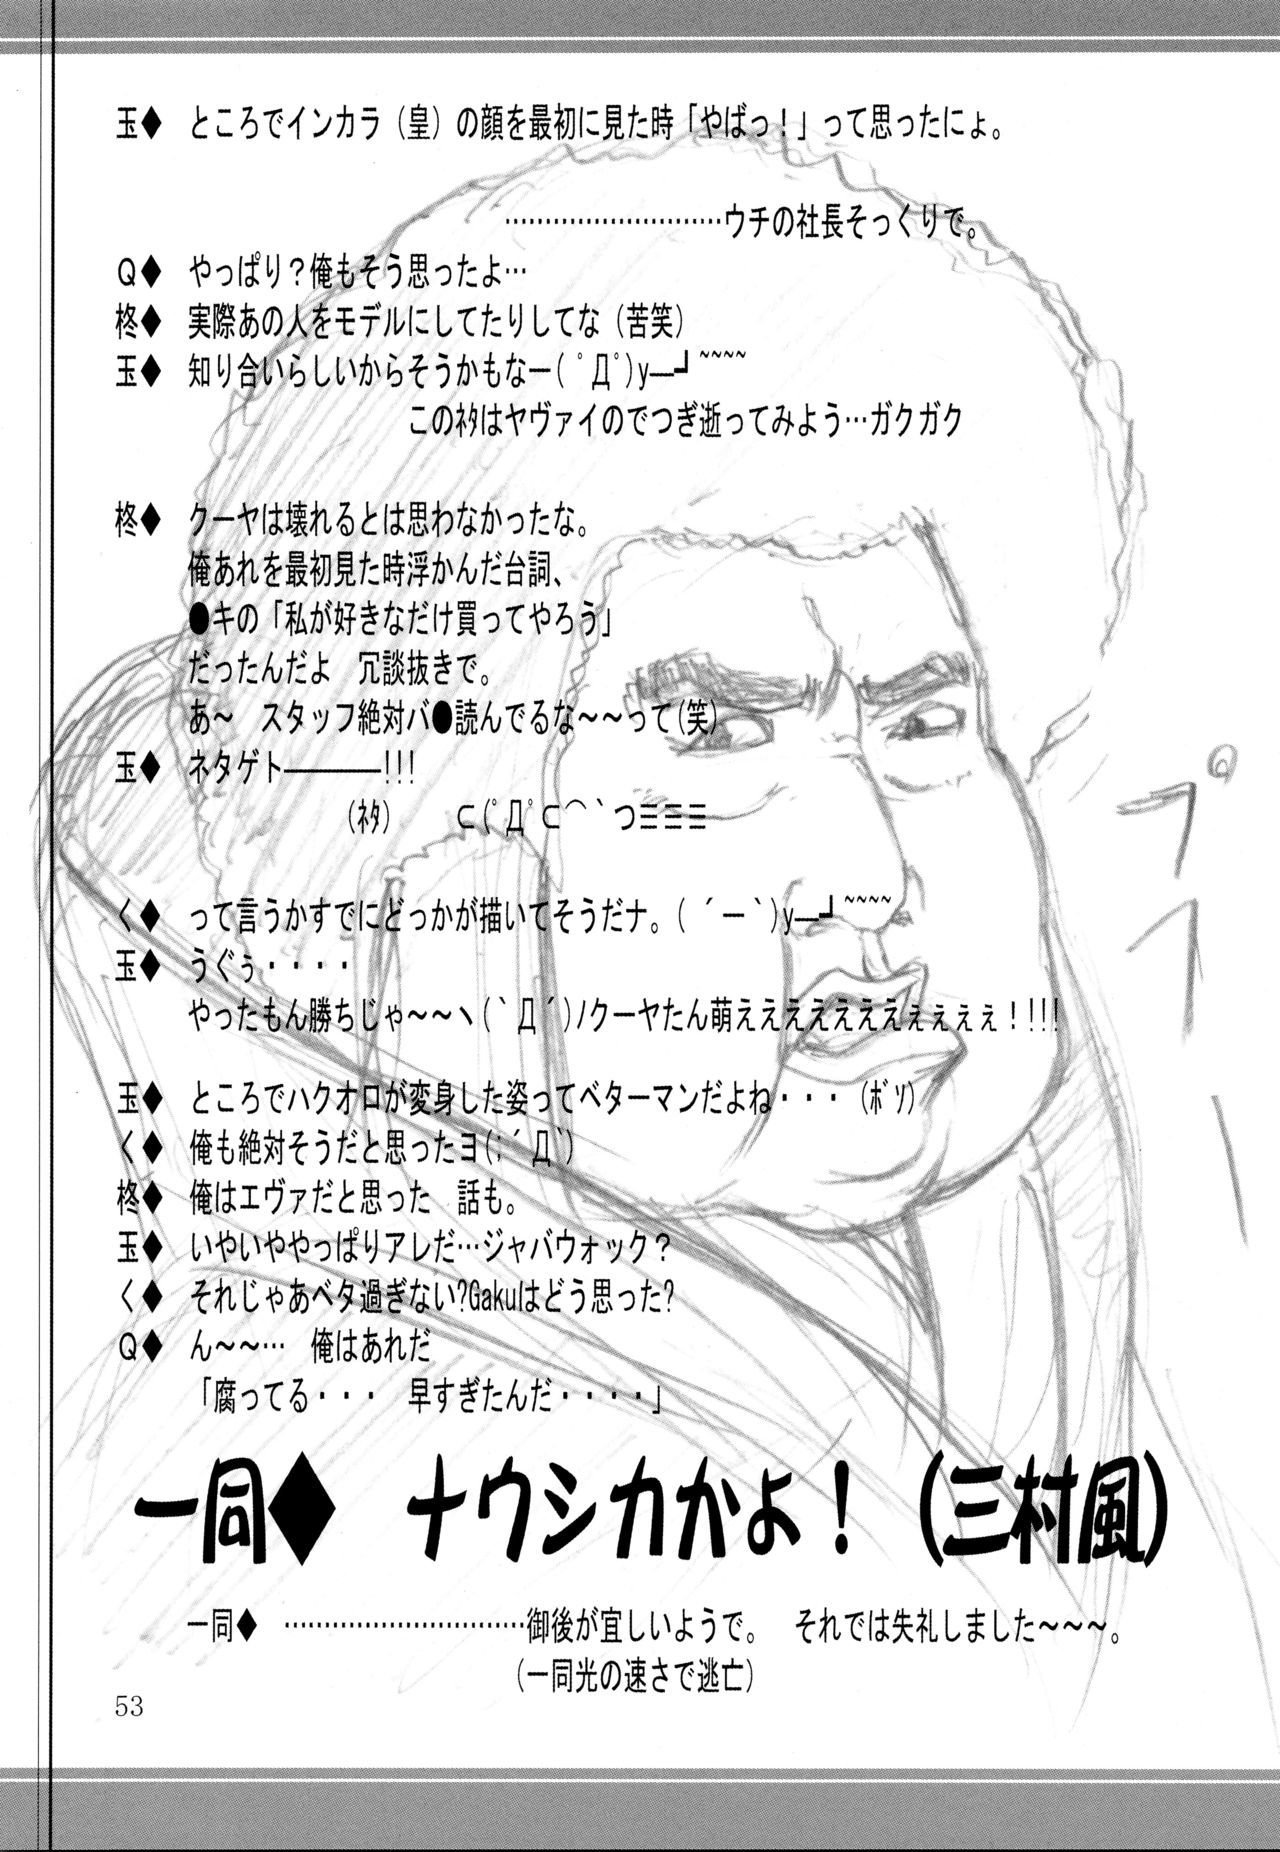 玉◆ ところでインカラ（皇）の顔を最初に見た時「やばっ！」って思ったにょ。
………………………ウチの社長そっくりで。
Q◆ やっぱり？俺もそう思ったよ…
柊◆ 実際あの人をモデルにしてたりしてな（苦笑）
玉◆ 知り合いらしいからそうかもなー( ﾟДﾟ)y─┛~~~~
このﾈﾀはヤヴァイのでつぎ逝ってみよう…ガクガク
柊◆ クーヤは壊れるとは思わなかったな。
俺あれを最初見た時浮かんだ台詞、
●キの「私が好きなだけ買ってやろう」
だったんだよ　冗談抜きで。
あ～　スタッフ絶対バ●読んでるな～～って(笑)
玉◆ ネタゲト――――!!!
(ﾈﾀ)　　⊂(ﾟДﾟ⊂⌒｀つ≡≡≡
く◆ って言うかすでにどっかが描いてそうだナ。( ´ー｀)y─┛~~~~
玉◆ うぐぅ・・・・
やったもん勝ちじゃ～～ヽ(｀Д´)ノクーヤたん萌えええええええぇぇぇぇ！!!!
玉◆ ところでハクオロが変身した姿ってベターマンだよね・・・（ﾎﾞｿ）
く◆ 俺も絶対そうだと思ったヨ(;´Д｀)
柊◆ 俺はエヴァだと思った　話も。
玉◆ いやいややっぱりアレだ…ジャバウォック？
く◆ それじゃあベタ過ぎない?Gakuはどう思った?
Q◆ ん～～…　俺はあれだ
「腐ってる・・・　早すぎたんだ・・・・」
一同◆　ナウシカかよ！（三村風）
一同◆　…………………………御後が宜しいようで。　それでは失礼しました～～～。
（一同光の速さで逃亡）
53
プ
イ
｜